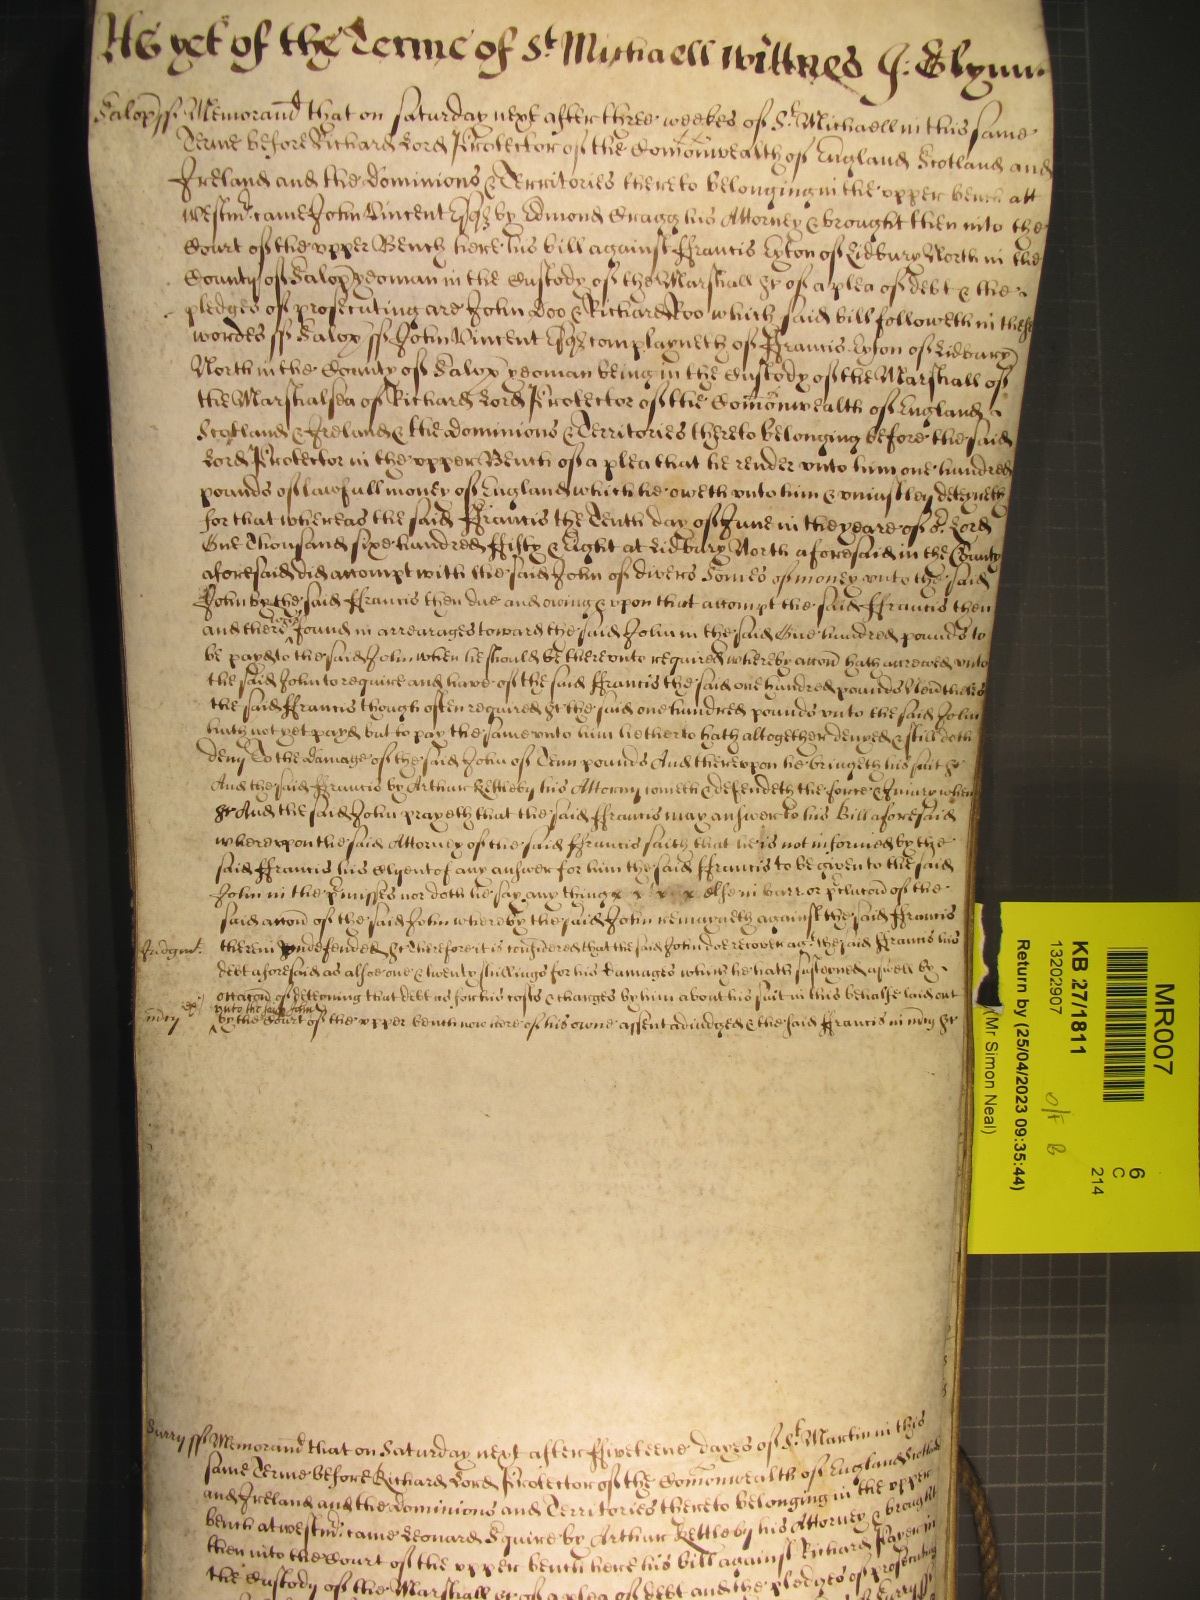 As yet of the Terme of St Michaell Wittnes J: Glynn
Salop ss Memorand that on Saturday next after three weekes of St Michaell in this same
Terme before Richard Lord Protector of the Comonwealth of England Scotland and
Ireland and the dominions & Territories thereto belonging in the upper bench att
Westmr came John Vincent Esqr by Edmond Cragg his Attorney & brought then into the
Court of the upper Bench here his bill against ffrancis Lyton of Lidbury North in the
County of Salop yeoman in the Custody of the Marshall &c of a plea of debt & the
pledges of prosecuting are John Doo & Richard Roo which said bill followeth in these
wordes ss Salop ss John Vincent Esqr complayneth of ffrancis Lyton of Lidbury
North in the County of Salop yeoman being in the Custody of the Marshall of
the Marshalsea of Richard Lord Protector of the Comonwealth of England
Scotland & Ireland & the dominions & Territories thereto belonging before the said
Lord Protector in the upper Bench of a plea that he render unto him one hundred
pounds of lawfull money of England which he oweth unto him & uniustley deteyneth
for that whereas the said ffrancis the Tenth day of June in the yeare of or Lord
One Thousand sixe hundred ffifty & Eight at Lidbury North aforesaid in the County
aforesaid did accompt with the said John of divers Somes of money unto the said
John by the said ffrancis then due and owing & upon that accompt the said ffrancis then
and there found in arrearages toward the said John in the said One hundred pounds to
be payd to the said John when he should be thereunto required whereby accon hath accrewed unto
the said John to require and have of the said ffrancis the said one hundred pounds Neverthelesse
the said ffrancis though often required &c the said one hundred pounds unto the said John
hath not yet payd but to pay the same unto him hetherto hath altogether denyed & still doth
deny To the damage of the said John of Tenn pounds And thereupon he bringeth his suit &c
And the said ffrancis by Arthur Kettleby his Attorny cometh & defendeth the force & Iniury when
&c And the said John prayeth that the said ffrancis may answer to his Bill aforesaid
whereupon the said Attorney of the said ffrancis saith that he is not informed by the
said ffrancis his Clyent of any answer for him the said ffrancis to be given to the said
John in the p'misses nor doth he say any thing x x x x else in barr or p'clucon of the
said accon of the said John whereby the said John remayneth against the said ffrancis
Judgmt. therein undefended &c Therefore it is considered that the said John doe recover agt the said ffrancis his
debt aforesaid as alsoe one & twenty shillings for his damages which he hath susteyned aswell by
occacon of deteyning that debt as for his costs & charges by him about his suit in this behalfe laid out
unto the said John
mcy by the Court of the upper bench now here of his owne assent adiudged & the said ffrancis in mcy &c
Surry ss Memorand that on Saturday next after ffiveteene dayes of St Martin in this
same Terme before Richard Lord Protector of the Comonwealth of England Scotland
and Ireland and the dominions and Territories thereto belonging in the upper
bench at westmr came Leonard Squire by Arthur Kettleby his Attorney & brought
then into the Court of the upper bench here his bill against Richard in
the Custody of the Marshall &c of a plea of debt and the pledges of prosecuting
MR007
6
C
214
KB 27/1811
13202907
O/F B
Return by (25/04/2023 09:35:44)
(Mr Simon Neal)